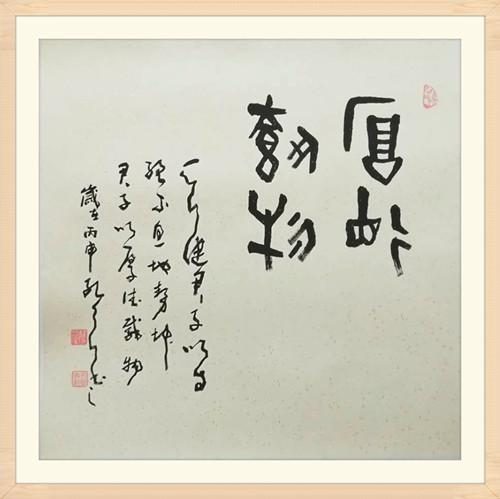 厚德
載物
天行健君子以自
强不息地势坤
君子以厚德載物
歲在丙申书之